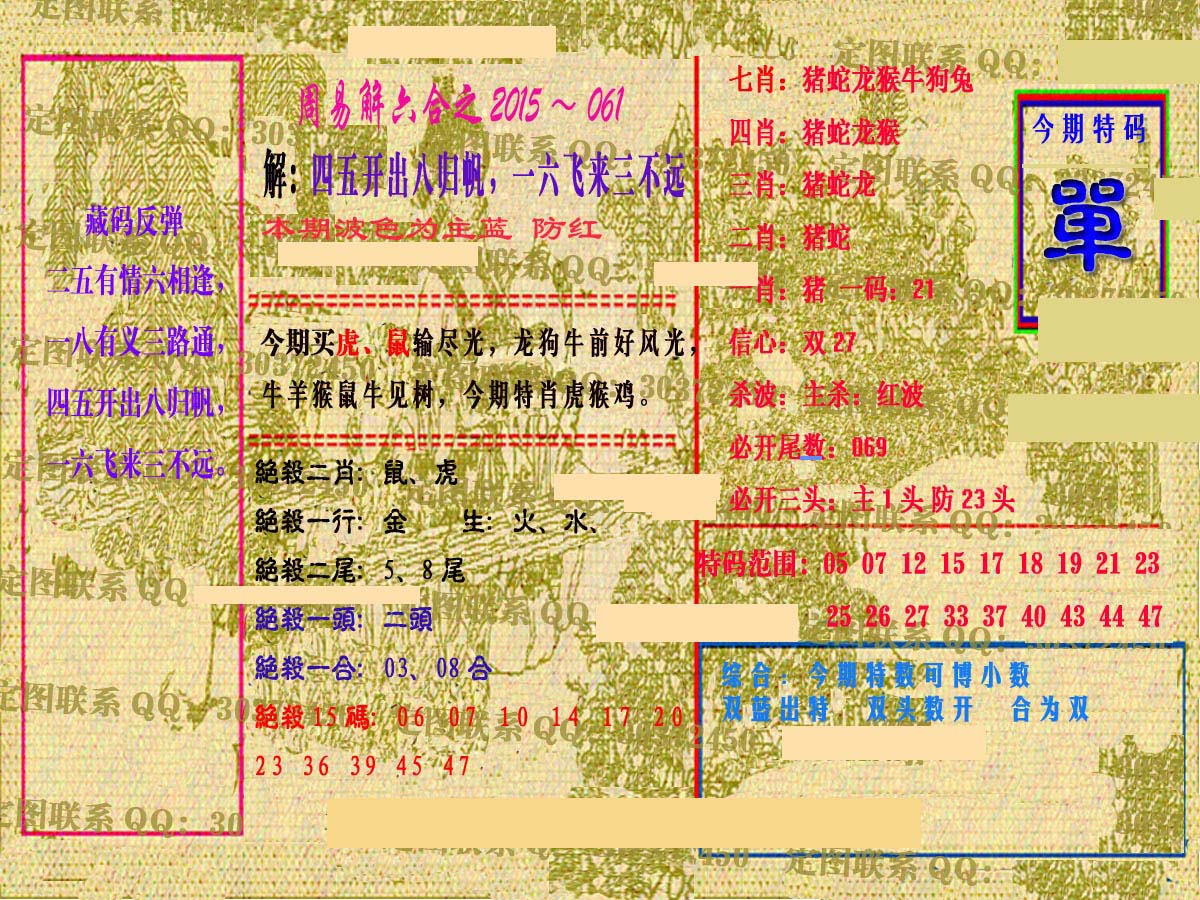 周易解六合之 2015 ~ 061
解：四五开出八归帆，一六飞来三不远
本期波色为主蓝 防红
藏码反弹
二五有情六相逢，
一八有义三路通，
四五开出八归帆，
一六飞来三不远。
今期买虎、鼠输尽光，龙狗牛前好风光，
牛羊猴鼠牛见树，今期特肖虎猴鸡。
絕殺二肖：鼠、虎
絕殺一行：金 生：火、水、
絕殺二尾：5、8 尾
絕殺一頭：二頭
絕殺一合：03、08 合
絕殺 15 碼：06 07 10 14 17 20
23 36 39 45 47
七肖：猪蛇龙猴牛狗兔
四肖：猪蛇龙猴
三肖：猪蛇龙
二肖：猪蛇
一肖：猪 一码：21
信心：双 27
杀波：主杀：红波
必开尾数：069
必开三头：主 1 头 防 23 头
今期特码
單
特码范围：05 07 12 15 17 18 19 21 23
25 26 27 33 37 40 43 44 47
综合：今期特数可博小数
双蓝出特 双头数开 合为双
定图联系 QQ：